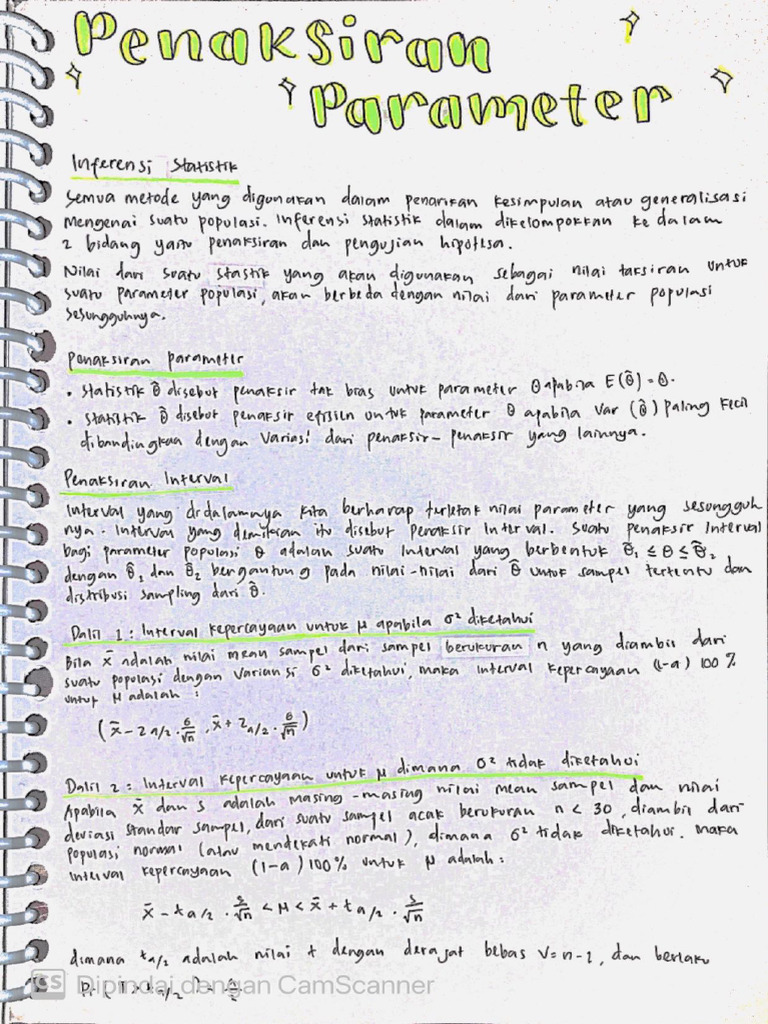 Penaksiran
Parameter
Inferensi Statistik
Semua metode yang digunakan dalam penarikan kesimpulan atau generalisasi
mengenai suatu populasi. Inferensi statistik dalam dikelompokkan ke dalam
2 bidang yaitu penaksiran dan pengujian hipotesa.
Nilai dari suatu stastik yang akan digunakan sebagai nilai taksiran untuk
suatu parameter populasi, akan berbeda dengan nilai dari parameter populasi
sesungguhnya.
Penaksiran parameter
• Statistik θ̂ disebut penaksir tak bias untuk parameter θ apabila E(θ̂) = θ.
• Statistik θ̂ disebut penaksir efisien untuk parameter θ apabila Var (θ̂) paling kecil
dibandingkan dengan Variasi dari penaksir-penaksir yang lainnya.
Penaksiran Interval
Interval yang didalamnya kita berharap terletak nilai parameter yang sesungguh
nya. Interval yang demikian itu disebut penaksir Interval. Suatu penaksir Interval
bagi parameter populasi θ adalah suatu Interval yang berbentuk θ̂₁ ≤ θ ≤ θ̂₂
dengan θ̂₁ dan θ̂₂ bergantung pada nilai-nilai dari θ̂ untuk sampel tertentu dan
distribusi sampling dari θ̂.
Dalil 1 : Interval kepercayaan untuk μ apabila σ² diketahui
Bila x̄ adalah nilai mean sampel dari sampel berukuran n yang diambil dari
suatu populasi dengan Variansi σ² diketahui, maka interval kepercayaan (1-a) 100 %
untuk μ adalah :
(x̄ - Z a/2 · σ/√n , x̄ + Z a/2 · σ/√n)
Dalil 2 : Interval kepercayaan untuk μ dimana σ² tidak diketahui
Apabila x̄ dan s adalah masing-masing nilai mean sampel dan nilai
deviasi standar sampel, dari suatu sampel acak berukuran n < 30, diambil dari
populasi normal (atau mendekati normal), dimana σ² tidak diketahui. Maka
interval kepercayaan (1-a) 100% untuk μ adalah :
x̄ - t a/2 · s/√n < μ < x̄ + t a/2 · s/√n
dimana t a/2 adalah nilai t dengan derajat bebas V = n-1, dan berlaku
CS Dipindai dengan CamScanner